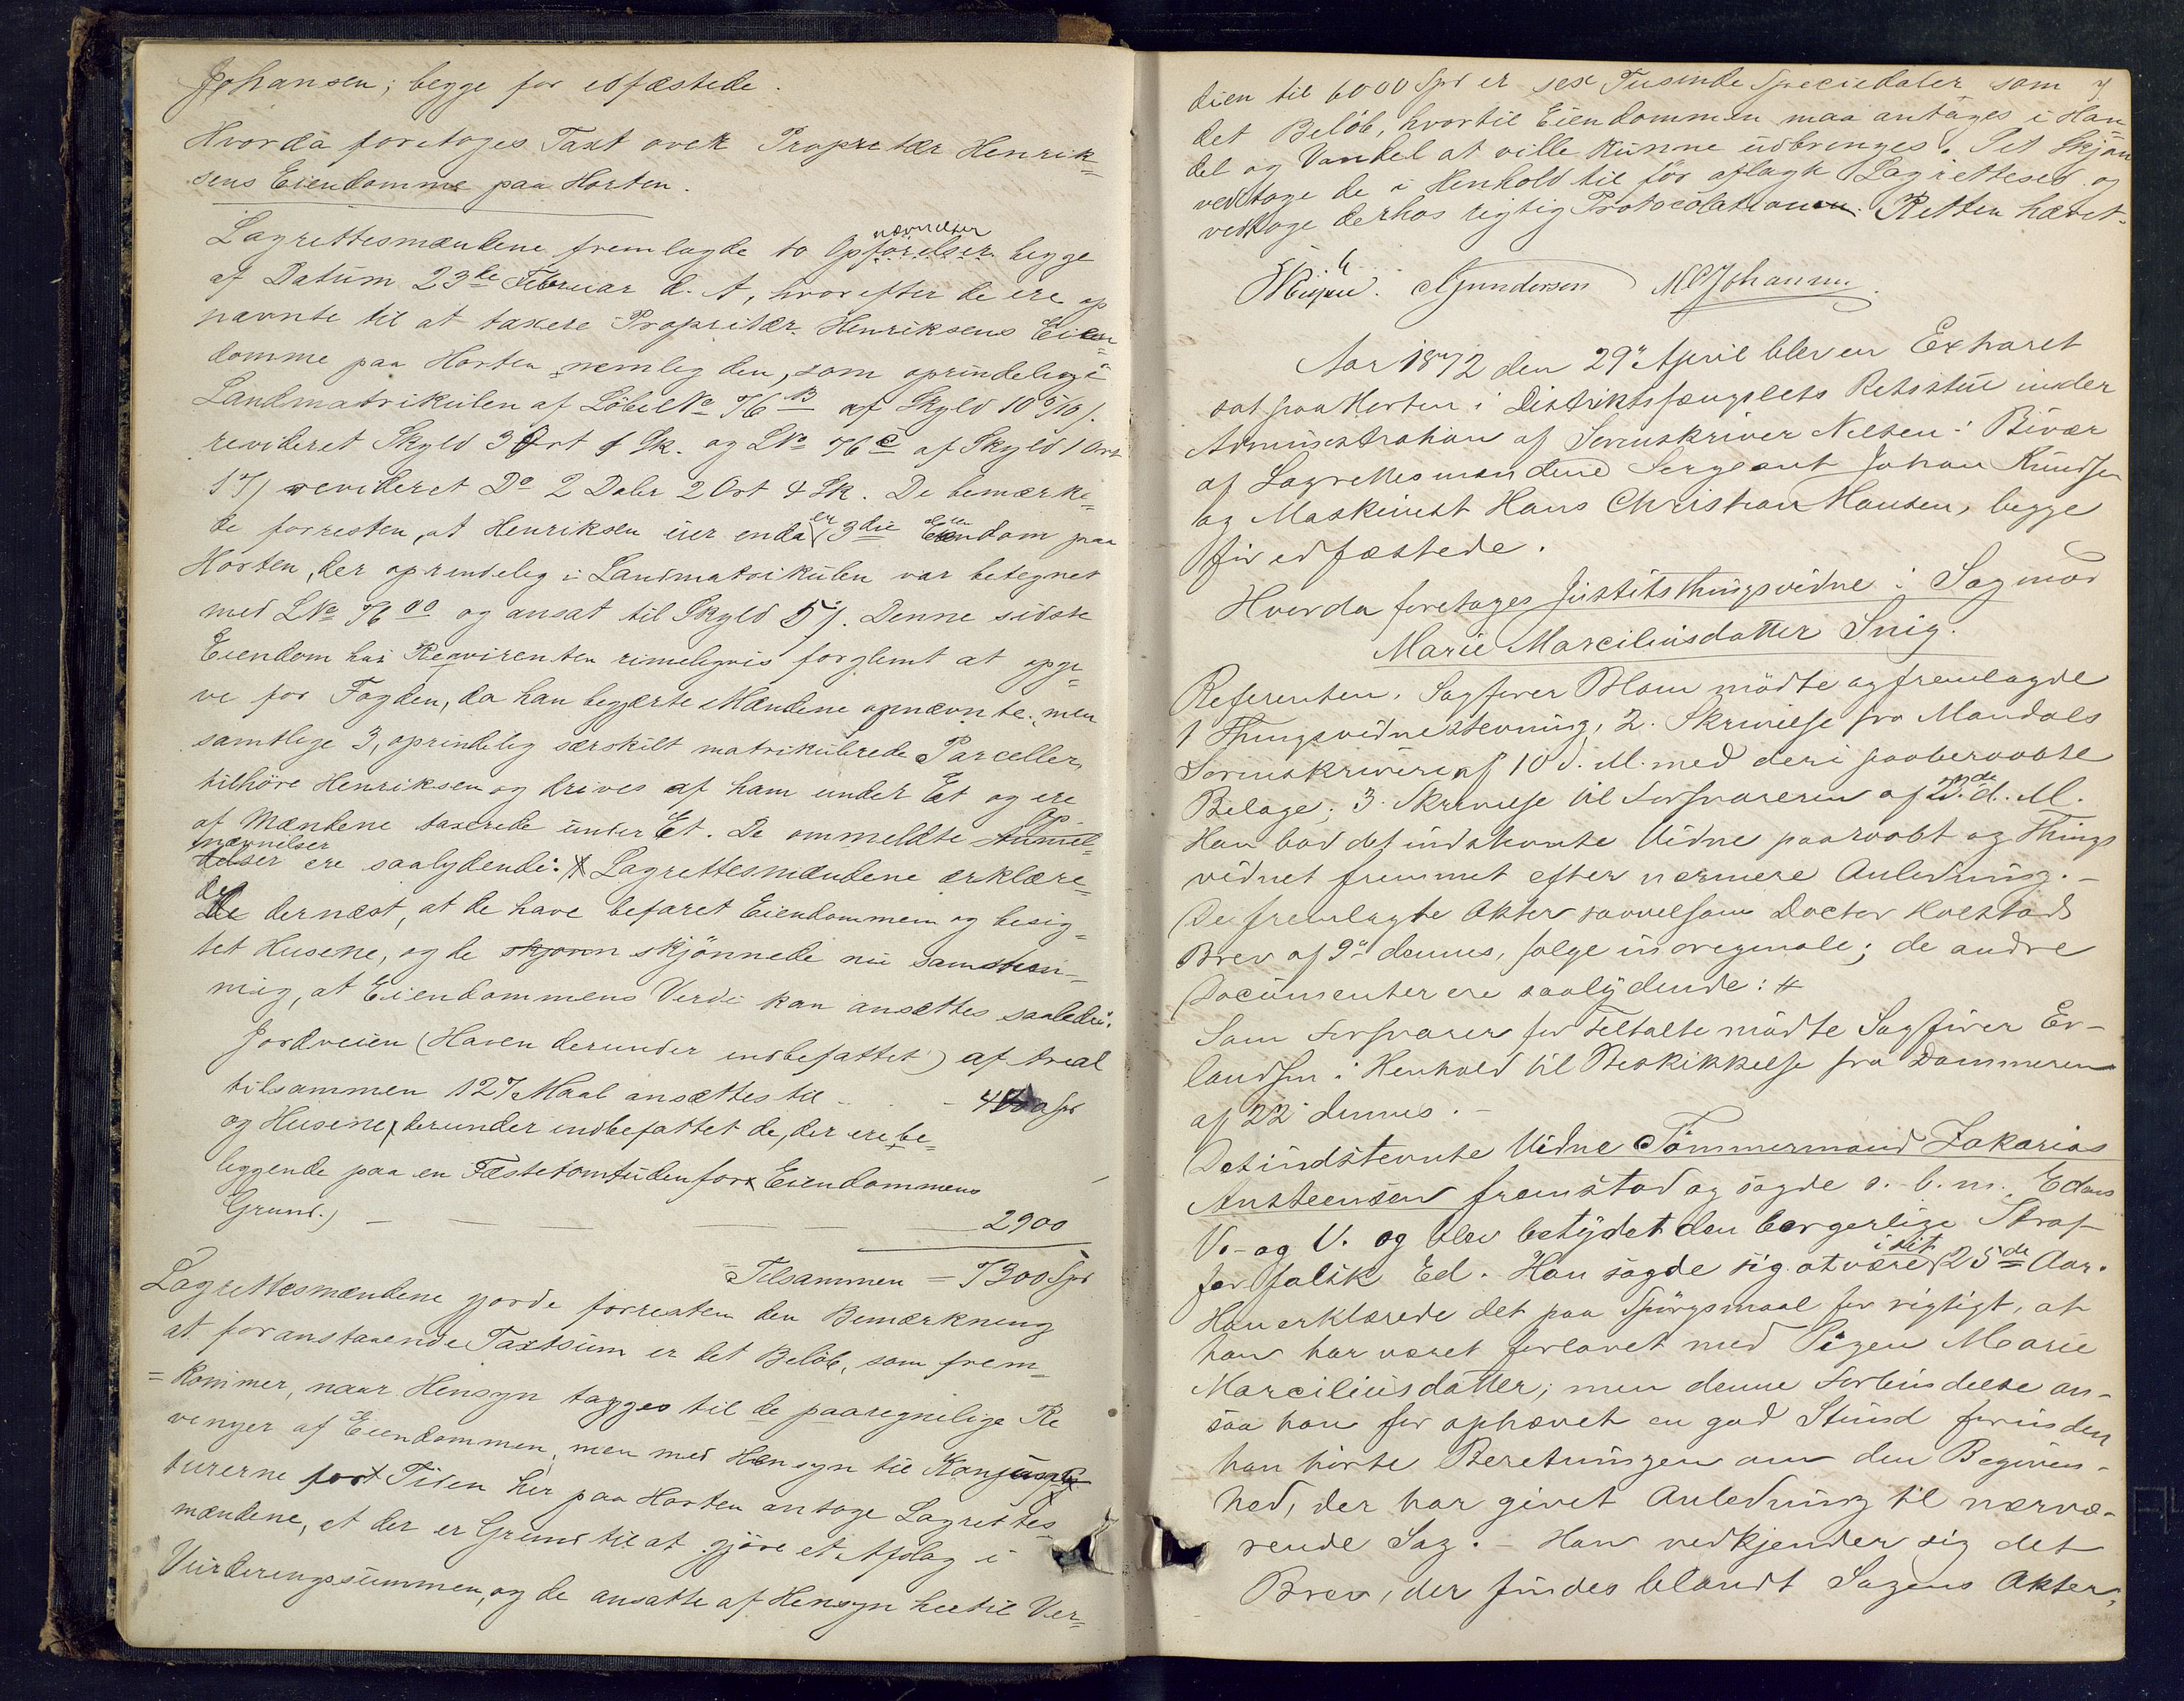 Johansen; begge for edfæstede.
Hvorda foretoges Taxt over Proprietær Henrik=
sens Eiendomme paa Horten.
Lagrettesmændene fremlagde to Opførelser nævnelser begge
af Datum 23de Februar d. A, hvorefter de ere op
nævnte til at taxere Proprietær Henriksens Eien=
domme paa Horten nemlig den, som oprindelig i
Landmatrikulen af Løbe No 76 B af Skyld 10 5/10 /.
revideret Skyld 3 Ort 1 Sk. og LNo 76 c af Skyld 1 Ort
17/ revideret Do 2 Daler 2 Ort 4 Sk. De bemærke=
de forresten, at Henriksen eier enda er 3die Eiendom paa
Horten, der oprindelig i Landmatrikulen var betegnet
med LNo 76 oo og ansat til Skyld 5/. Denne sidste
Eiendom har Reqvirenten rimeligvis forglemt at opgi=
ve for Fogden, da han begjærte Mændene opnævnte, men
samtlige 3, oprindelig særskilt matrikulerede Parceller,
tilhøre Henriksen og drives af ham under Et og ere
af Mændene taxerede under Et. De ommeldte Anmel= Op-
delser nævnelser ere saalydende: # Lagrettesmændene erklære=
de dernæst, at de have befaret Eiendommen og besig=
tet Husene, og de skjønn skjønnede nu samstem-
mig, at Eiendommens Verdi kan ansættes saaledes:
Jordveien (Haven derunder indbefattet) af Areal
tilsammen 127 Maal ansættes til - - - 4400 Spd
og Husene, derunder indbefattet de, der ere be=
liggende paa en Fæstetomt udenfor Eiendommens
Grund.) - - - - 2900
Tilsammen = 7300 Spd
Lagrettesmændene gjorde forresten den Bemærkning
at foranstaaende Taxtsum er det Beløb, som frem=
=kommer, naar Hensyn tagges til de paaregnelige Re
venyer af Eiendommen, men med Hensyn til Konjunk
turerne for Tiden her paa Horten antoge Lagrettes
mændene, at der er Grund til at gjøre et Afslag i
Vurderingssummen, og de ansatte af Hensyn hertil Ver=
dien til 6000 Spd er sex Tusinde Speciedaler som
det Beløb, hvortil Eiendommen maa antages i Han
del og Vandel at ville kunne udbringes. Det Skjøn
vedtoge de i Henhold til før aflagte Lagrettesed og
vedtoge derhos rigtig Protocolationen. Retten hævet.
Gundersen N C Johansen
Aar 1872 den 29de April blev en Extraret
sat paa Horten i Distriktsfængslets Retsstue under
Administration af Sorenskriver Nilsen i Bivær
af Lagrettesmændene Sergeant Johan Knudsen
og Maskinist Hans Christian Hansen, begge
før edfæstede.
Hvorda foretoges Justitsthingsvidne i Sag mod
Marie Marciliusdatter Snig.
Referenten, Sagfører Blom mødte og fremlagde
1 Thingsvidnestevning, 2. Skrivelse fra Mandals
Sorenskriveri af 10 d. M. med deri paaberaabte
Bilage; 3. Skrivelse til Forsvareren af 22de d. M.
Han bad det indstevnte Vidne paaraabt og Things
vidnet fremmet efter nærmere Anledning. -
De fremlagte Akter saavelsom Doctor Kolstads
Brev af 9de dennes, følge in originale; de andre
Documenter ere saalydende: #
Som Forsvarer for Tiltalte mødte Sagfører Er-
landsen i Henhold til Beskikkelse fra Dommeren
af 22 dennes. -
Det indstevnte Vidne Tømmermand Zakarias
Ansteensen fremstod og sagde s. b. m. Edens
V. og V. og blev betydet den borgerlige Straf
for falsk Ed. Han sagde sig at være i sit 25de Aar.
Han erklærede det paa Spørgsmaal for rigtigt, at
han har været forlovet med Pigen Marie
Marciliusdatter; men denne Forbindelse an-
saa han for ophævet en god Stund forinden
han hørte Beretningen om den Begiven-
hed, der har givet Anledning til nærvæ-
rende Sag. - Han vedkjender sig det
Brev, der findes blandt Sagens Akter,